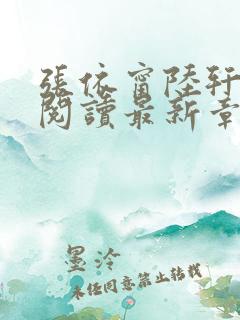 張依甯陸軒
閱讀最新章
墨泠
未经同意禁止转载